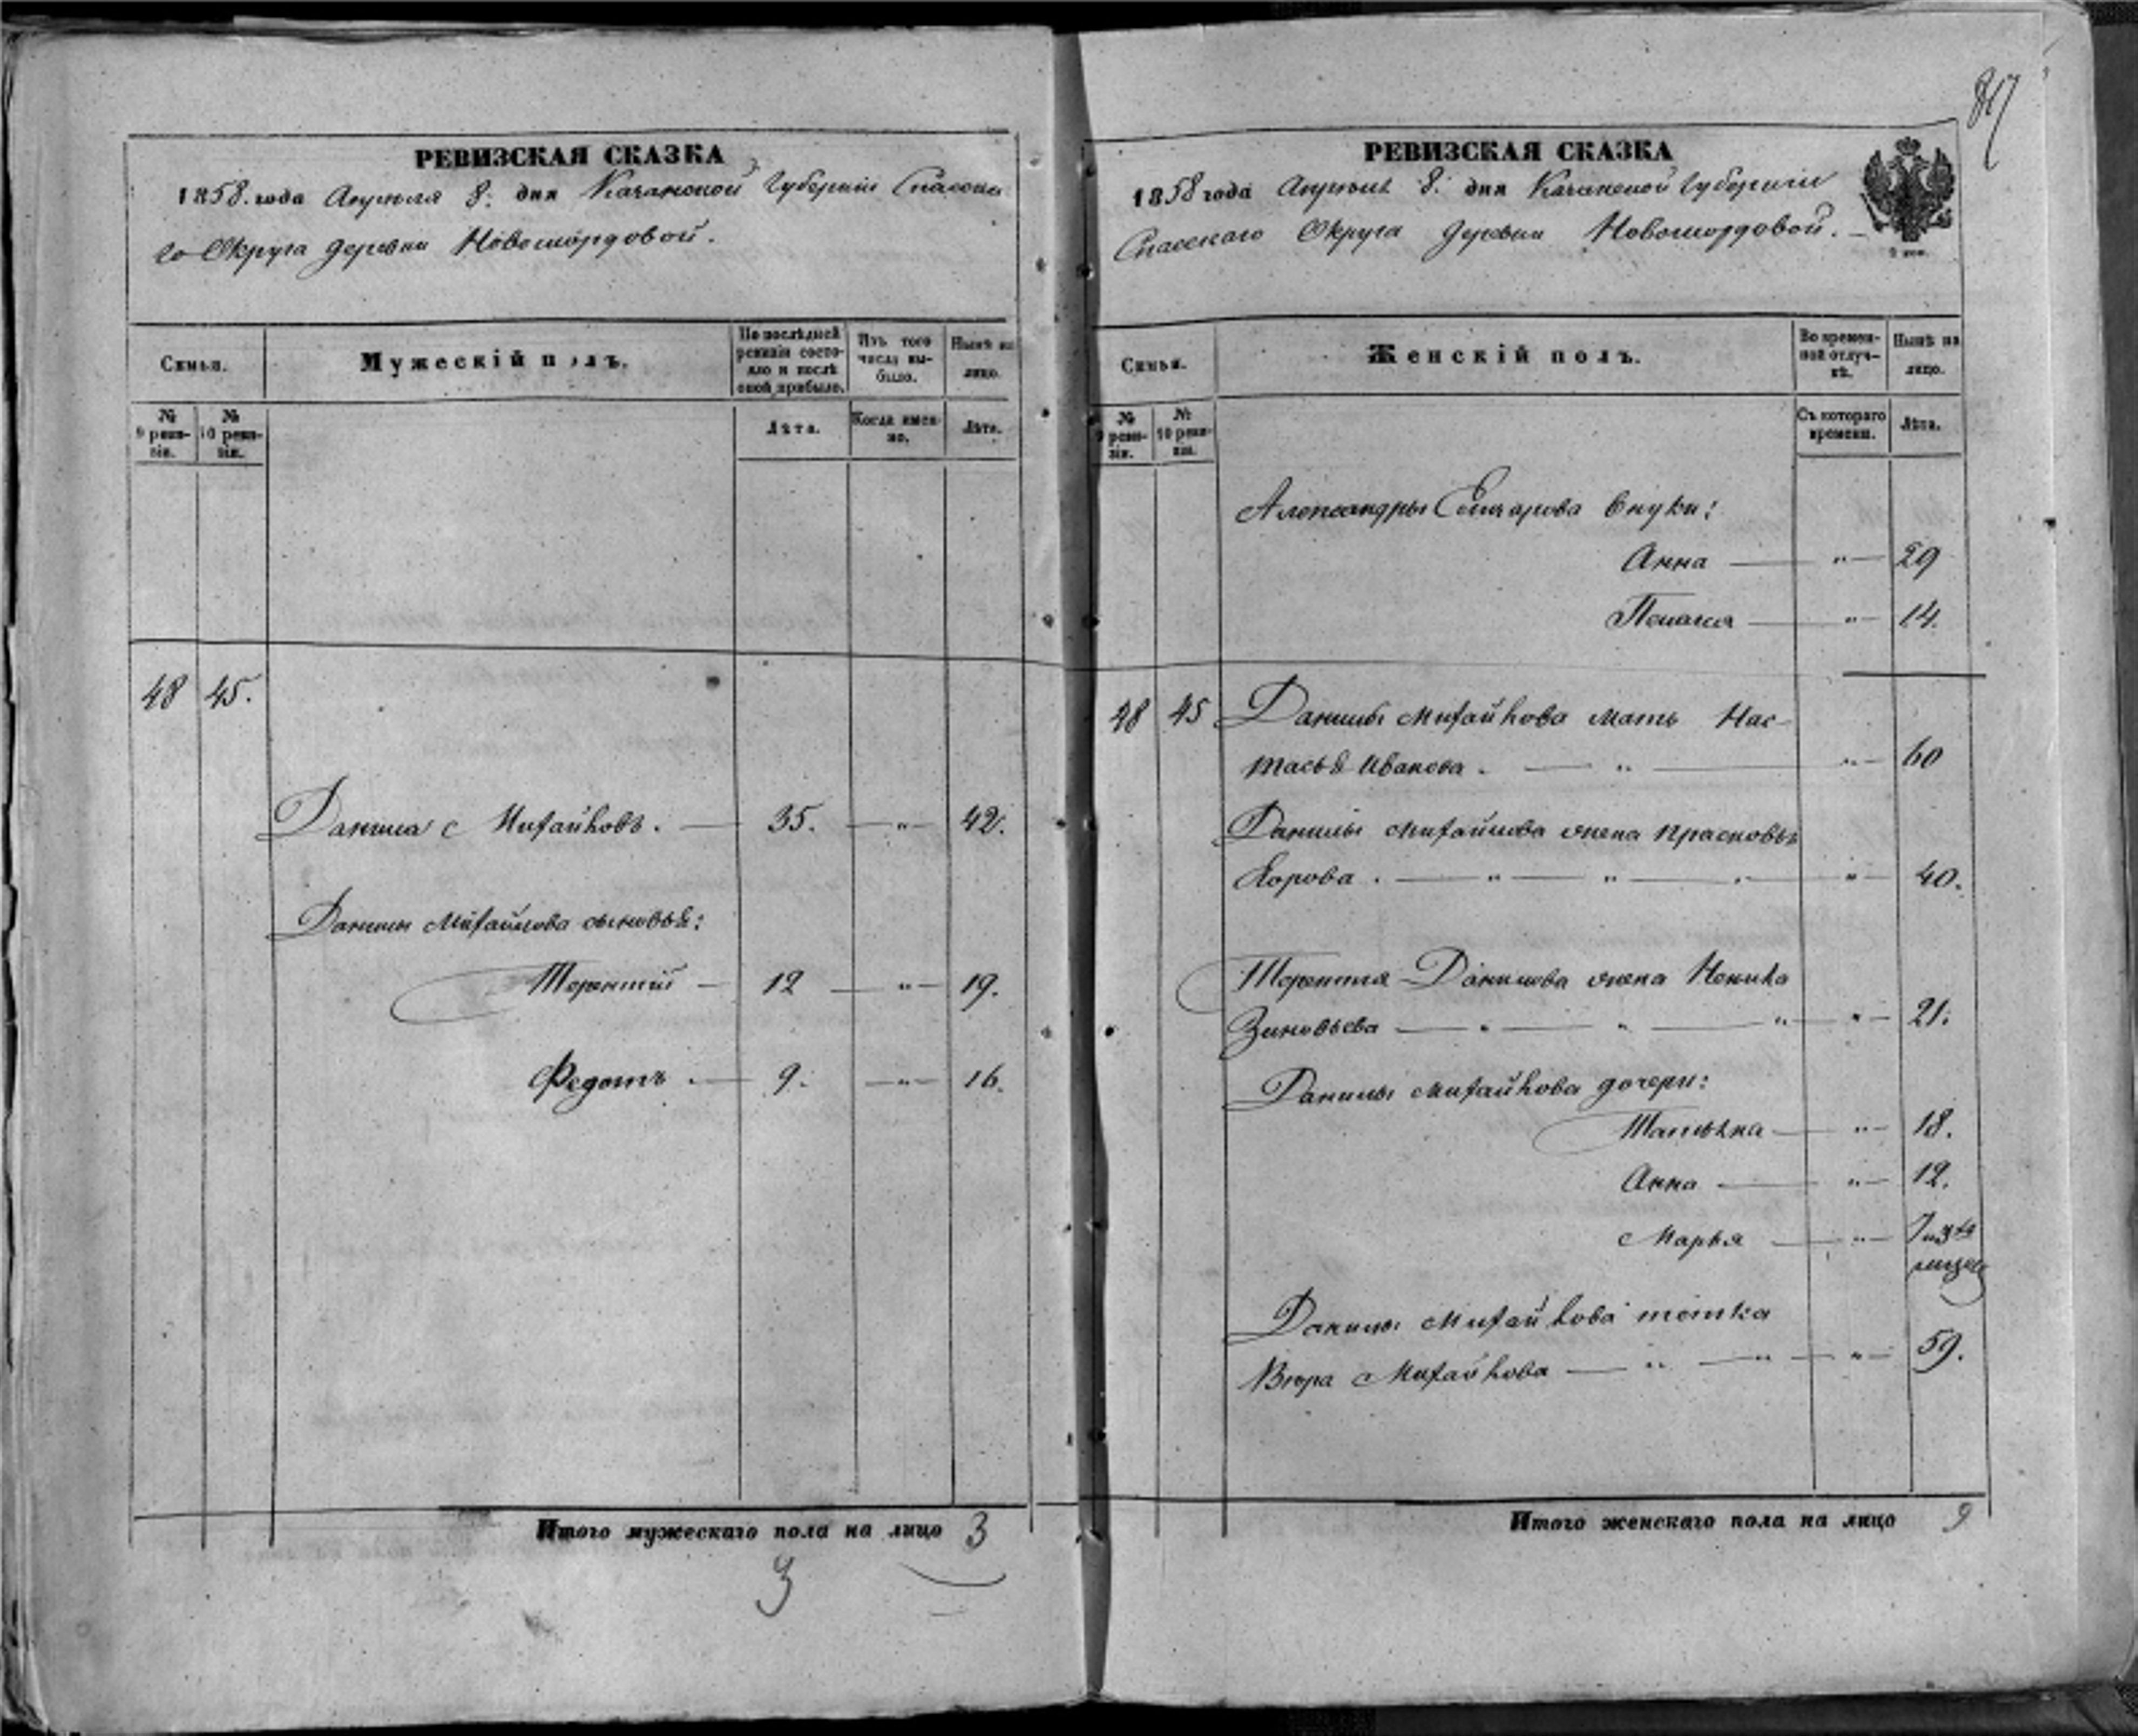 РЕВИЗСКАЯ СКАЗКА
1858. года Апреля 8. дня Казанской Губернии Спасска
го Округа деревни Новомордовой.
Семьи.
Мужескій полъ.
По послѣдней ревизіи состояло и послѣ оной прибыло.
Изъ того числа выбыло.
Нынѣ на лицо.
№ 9 ревизіи.
№ 10 ревизіи.
Лѣта.
Когда именно.
Лѣта.
48 45.
Данила Михайловъ. — 35. — „ — 42.
Данилы Михайлова сыновья:
Терентій — 12 — „ — 19.
Федотъ. — 9. — „ — 16.
Итого мужескаго пола на лицо 3
3
РЕВИЗСКАЯ СКАЗКА
1858 года Апреля 8. дня Казанской Губернии
Спасскаго Округа деревни Новомордовой.
Семьи.
Женскій полъ.
Во временной отлучкѣ.
Нынѣ на лицо.
№ 9 ревизіи.
№ 10 ревизіи.
Съ котораго времени.
Лѣта.
Александры внуки:
Анна — „ — 29
— „ — 14.
48 45 Данилы Михайлова мать Нас-
тасья Иванова. — „ — „ — 60
Данилы Михайлова жена Прасковья
. — „ — „ — „ — „ — 40.
Терентія Данилова жена
Зиновьева — „ — „ — „ — „ — 21.
Данилы Михайлова дочери:
Татьяна — „ — 18.
Анна — „ — 12.
Марья — „ —
Данилы Михайлова тетка
Вера Михайлова — „ — „ — „ — 59.
Итого женскаго пола на лицо 9